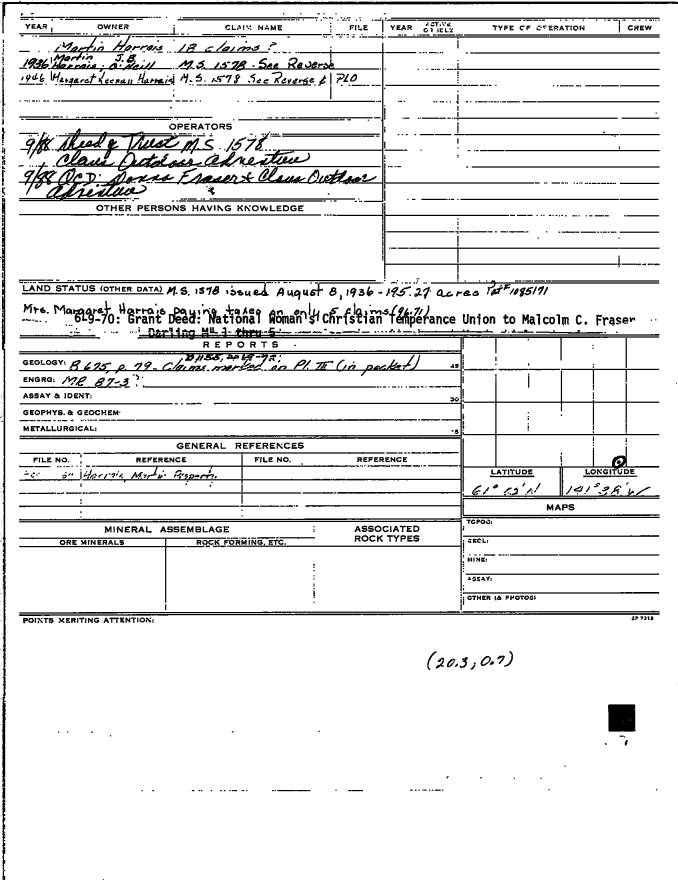 YEAR OWNER CLAIM NAME FILE YEAR ACTIVE OR IDLE TYPE OF OPERATION CREW
Martin Harrais 18 claims?
Martin J.B.
1936 Harrais; O'Neill M.S. 1578 - See Reverse
1946 Margaret Keenan Harrais M.S. 1578 See Reverse & PLO
OPERATORS
9/88 Deed of Trust M.S. 1578
Claus Outdoor Adventure
9/88 QCD: Donna Fraser & Claus Outdoor
Adventure
OTHER PERSONS HAVING KNOWLEDGE
LAND STATUS (OTHER DATA) M.S. 1578 issued August 8, 1936 - 195.27 acres Pat # 1085171
Mrs. Margaret Harrais paying taxes on only 5 claims (96-71)
6-9-70: Grant Deed: National Woman's Christian Temperance Union to Malcolm C. Fraser
Darling No. 1 thru 5
REPORTS
GEOLOGY: B 675, p. 79 - Claims marked on Pl. III (in pocket) 45
ENGRG: MR 87-3?
ASSAY & IDENT: 30
GEOPHYS. & GEOCHEM
METALLURGICAL: 15
GENERAL REFERENCES
FILE NO. REFERENCE FILE NO. REFERENCE
Harrais, Martin Property
LATITUDE LONGITUDE
61° N 141° 38' W
MAPS
MINERAL ASSEMBLAGE ASSOCIATED ROCK TYPES
ORE MINERALS ROCK FORMING, ETC.
TOPOG:
GEOL:
MINE:
ASSAY:
OTHER (& PHOTOS)
POINTS MERITING ATTENTION:
(20.3, 0.7)